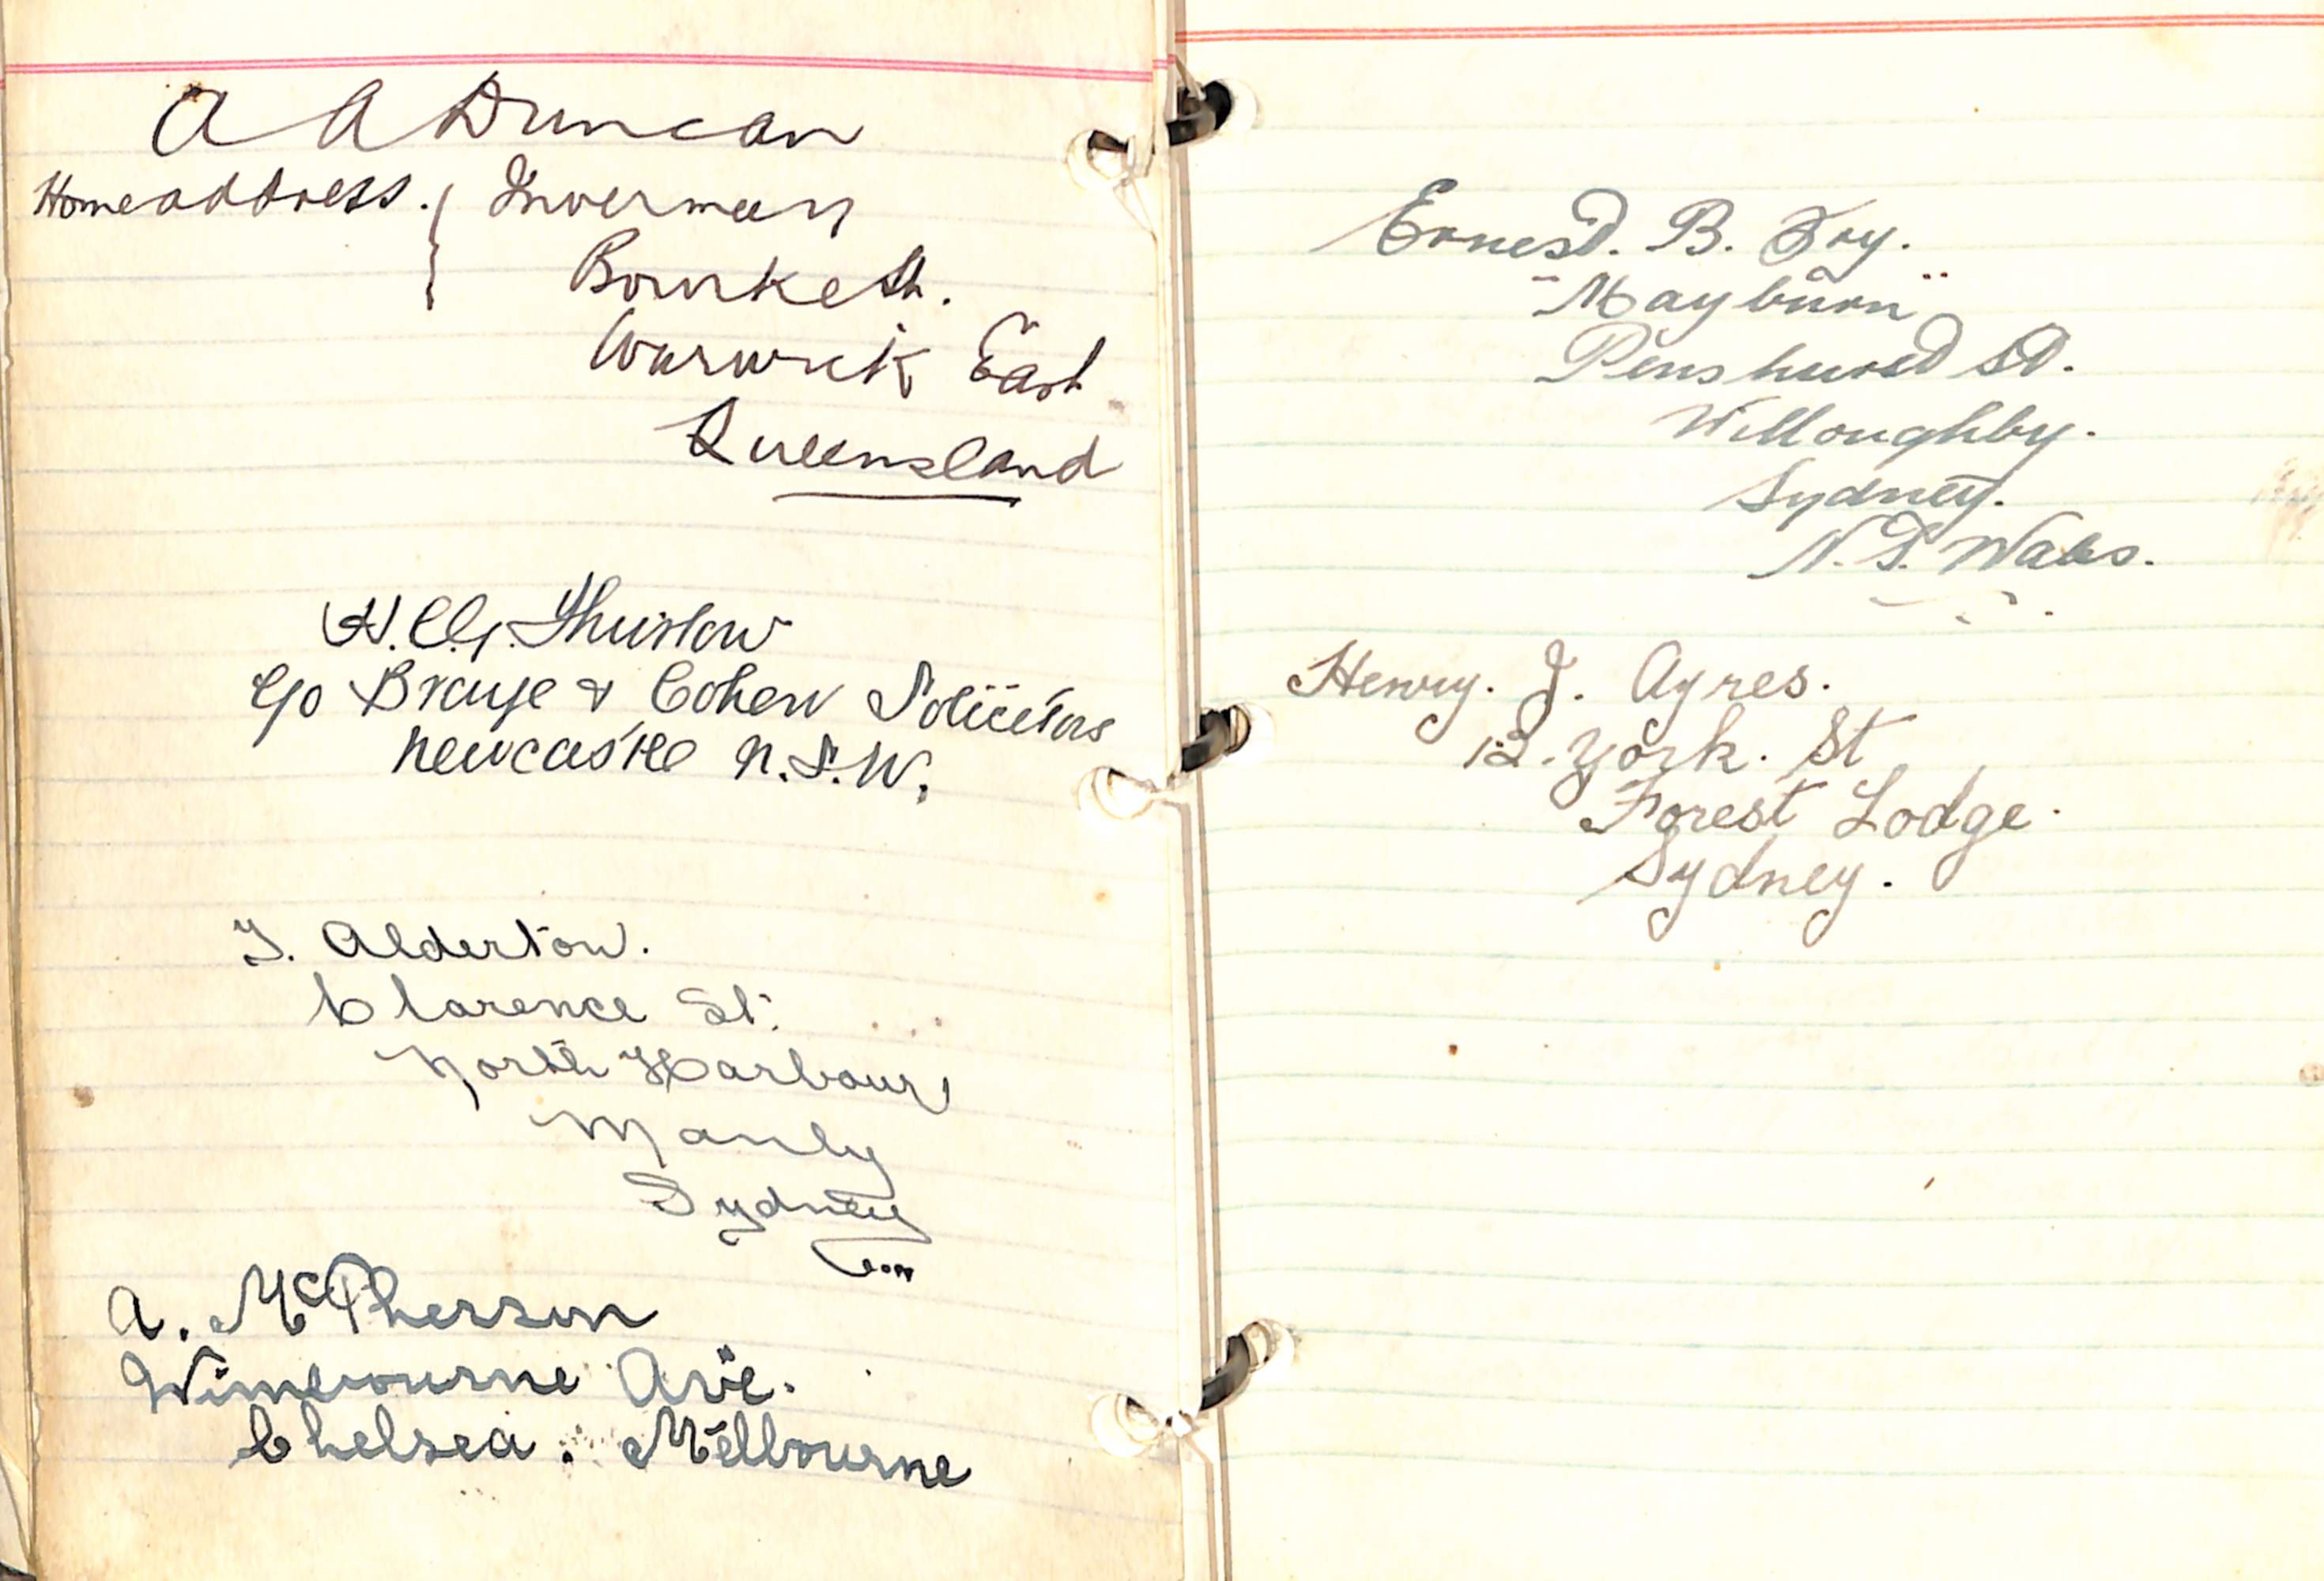 A A Duncan
Home address. Inverman
Bourke St.
Warwick East
Queensland
Thurlow
c/o Braye & Cohen Solicitors
Newcastle N.S.W.
T. Alderton.
Clarence St.
North Harbour
Manly
Sydney
A. McPherson
Wimbourne Ave.
Chelsea. Melbourne
Ernest. B. Foy.
"Mayburn"
Penshurst St.
Willoughby.
Sydney.
N. S. Wales.
Henry. J. Ayres.
12. York. St
Forest Lodge.
Sydney.